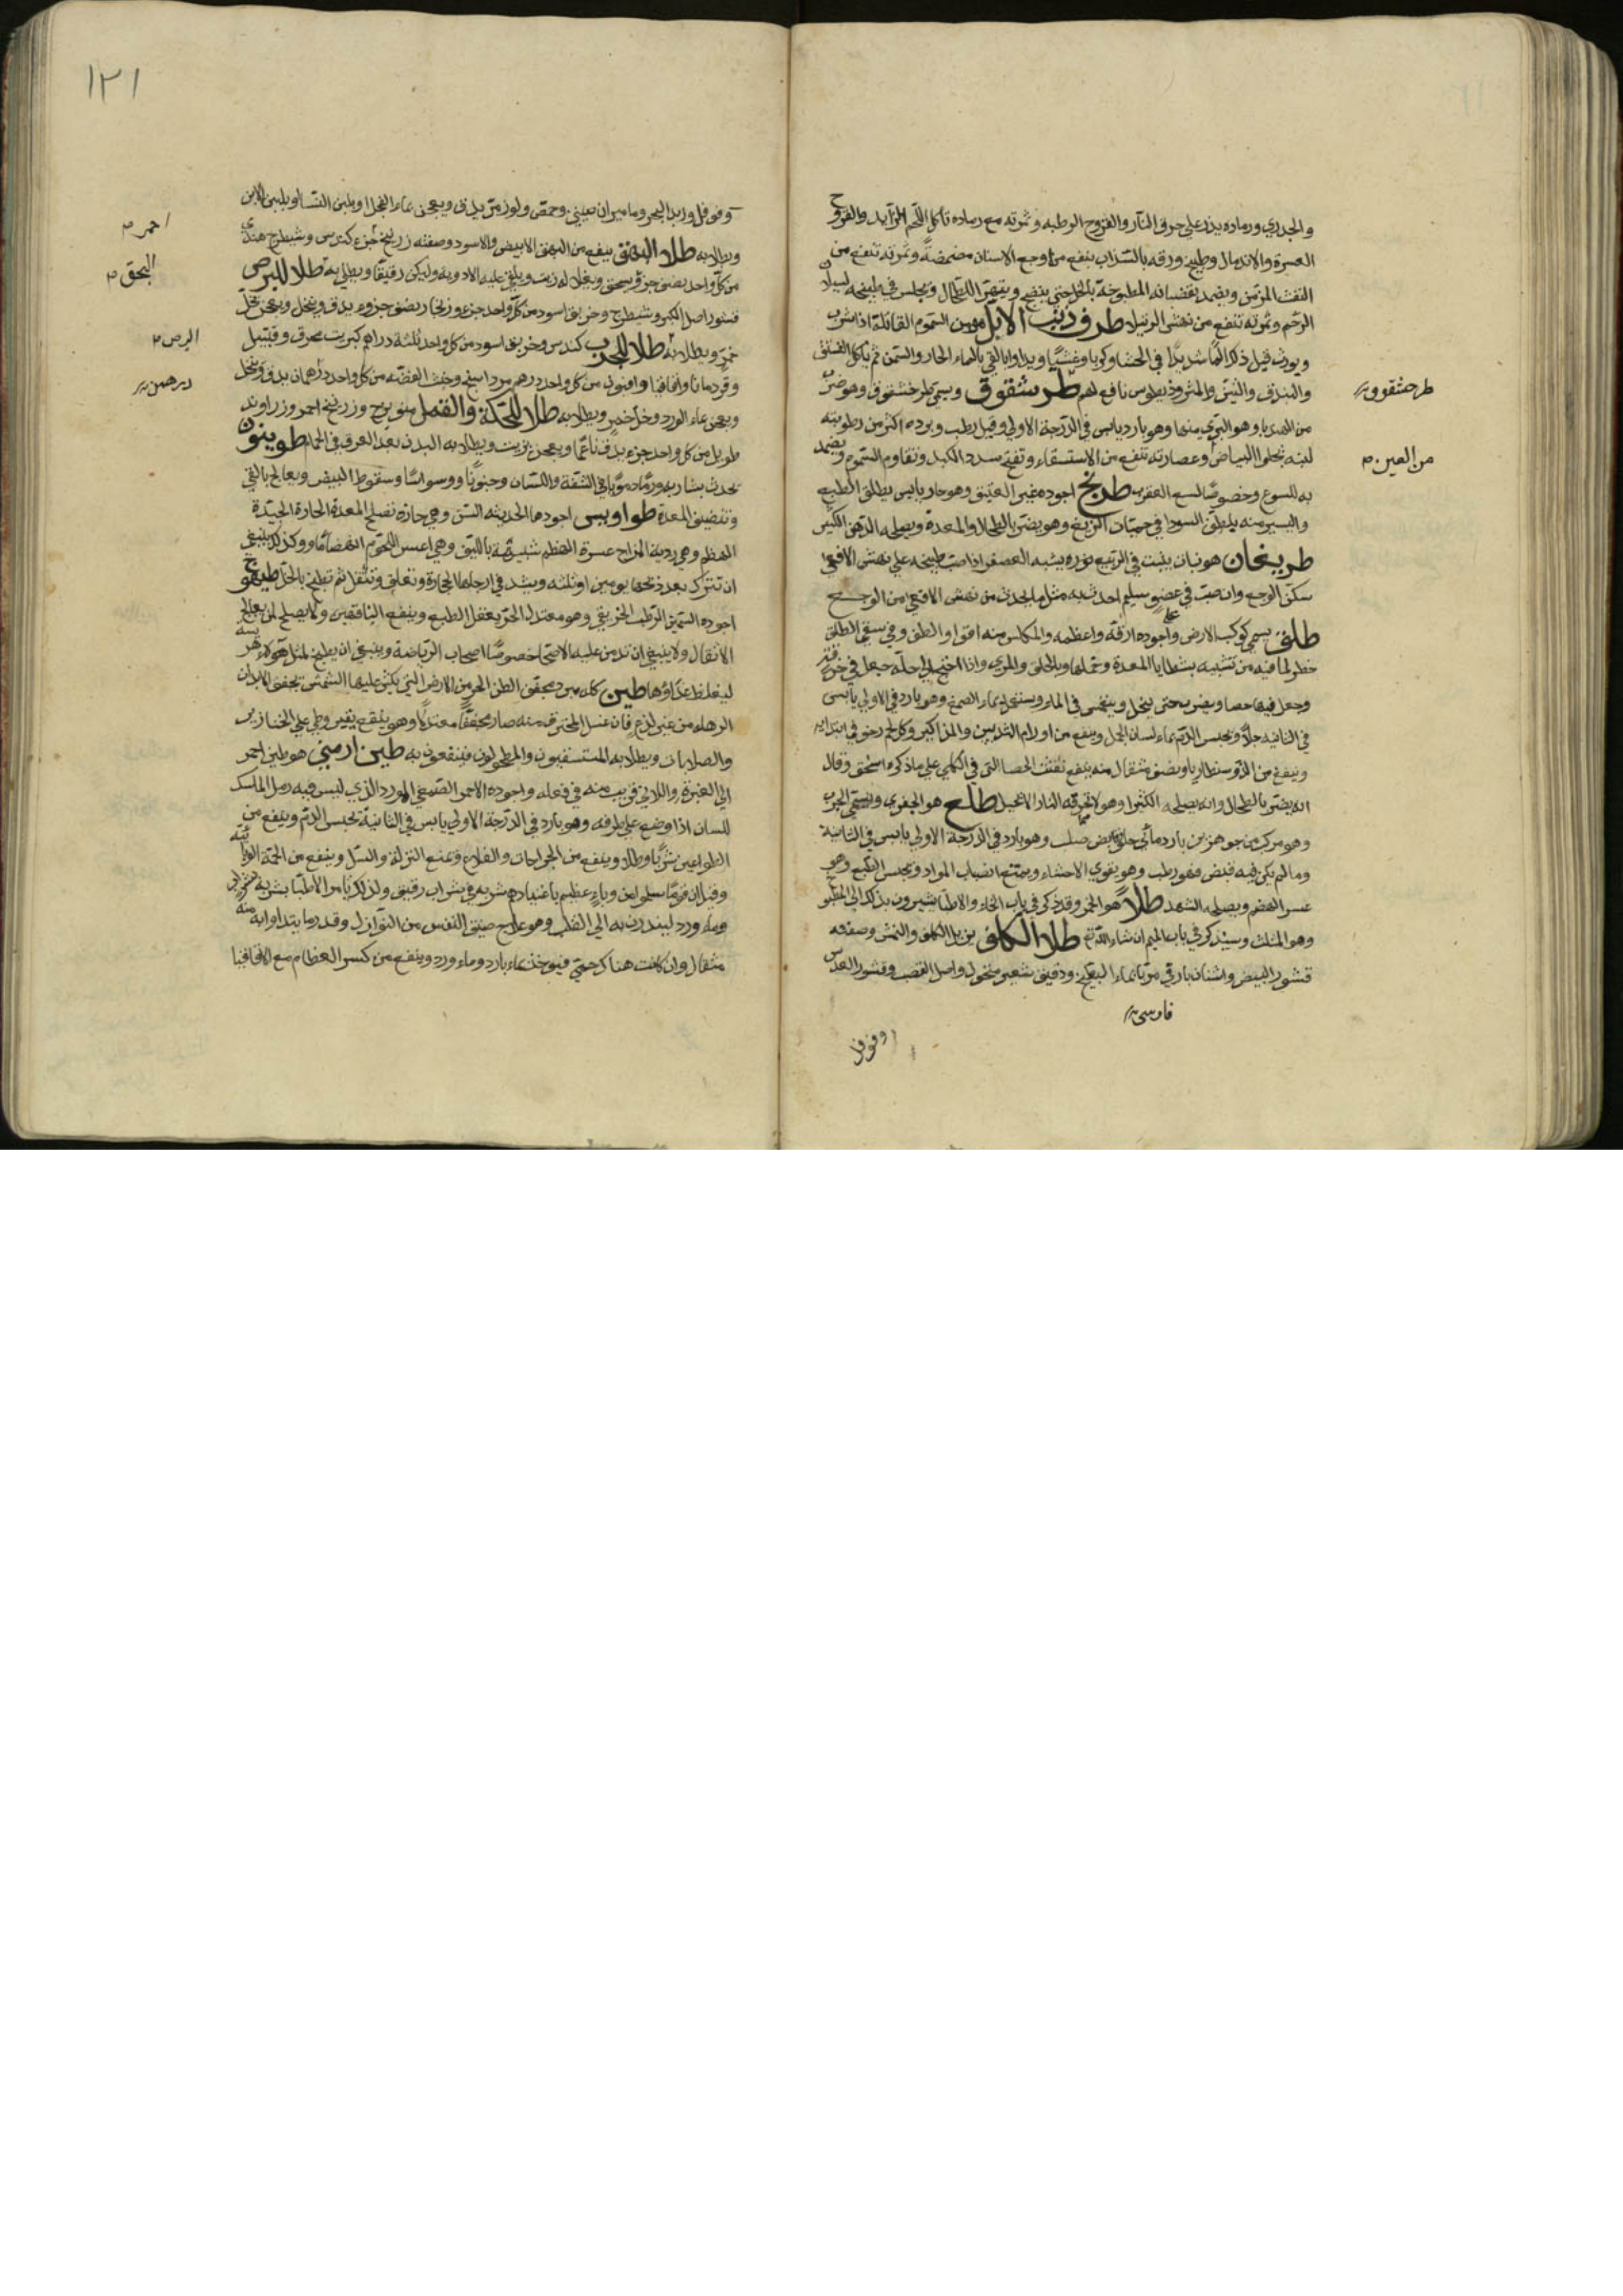 والجدري ورماده يذر على حرق النار والقروح الرطبه وثمرته مع رماده تأكل اللحم الزايد والقروح
العسرة والاندمال وطبيخ ورقه بالشراب ينفع من وجع الاسنان مضمضة وثمرته تنفع من
النفث المزمن ويضمد بقضبانه المطبوخة بالخل حتى ينضج الطحال ويجلس في طبيخه لسيلان
الرحم وثمرته تنفع من نهش الرتيلا طرف ذنب الايل من السموم القاتلة اذا شرب
والبندق والتين نافع لهم طرشقوق ويسمى طرخشقوق وهو ضرب
من الهندبا وهو البري منها وهو بارد يابس في الدرجة الاولى وقيل رطب وبرده اكثر من رطوبته
لبنه يجلو البياض وعصارته تنفع من الاستسقاء وتفتح سدد الكبد وتقاوم السموم ويضمد
به للسوع وخصوصا لسع العقرب طريخ اجوده غير العتيق وهو حار يابس يطلق الطبع
واليسير منه يطلق السودا في حميات الربع وهو يضر بالطحال والمعدة ويصلحه الدهن الكثير
طريخان هو نبات ينبت في الربيع بزره يشبه العصفر اذا صب طبيخه على نهش الافعى
سكن الوجع وان صب في عضو سليم احدث به مثل ما يحدث من نهش الافعى من الوجع
طلق يسمى كوكب الارض واجوده ارقه واعظمه والمكلس منه اقوا والطف وفي سقي الطلق
خطر لما فيه من تشبثه بشظايا المعدة وخملها وبالحلق والمري واذا احتيج الى حله جعل في خرقة
وجعل فيها حصا ويضرب حتى ينحل ويغمس في الماء ويستعمل بماء الصمغ وهو بارد في الاولى يابس
في الثانيه جلا ويحبس الدم بماء لسان الحمل وينفع من اورام الثديين والمذاكير وكل لحم رخو في ابتدايه
وينفع من الدوسنطاريا ونصف مثقال منه ينفع تفتت الحصا التي في الكلى على ما ذكره اسحق وقال
انه يضر بالطحال وانه يصلحه الكثيرا وهو لا تحرقه النار الا بحيل طلع هو الجفرى ويسمى
وهو مركب من جوهرين بارد مائي صلب وهو بارد في الدرجة الاولى يابس في الثانية
وما لم يكن فيه قبض فهو رطب وهو يقوي الاحشاء ويمنع انصباب المواد ويحبس الطبع وهو
عسر الهضم ويصلحه الشهد طلا هو الخمر وقد ذكر في باب الخاء والاطبا يشيرون بذلك الى المطبوخ
وهو المثلث وسيذكر في باب الميم ان شاء الله تع طلا الكلف يزيل الكلف والنمش وصفته
قشور البيض واشنان بارقي مربا بماء البطيخ ودقيق شعير منخول واصل القصب وقشور العدس
فارسى
وفوفل
طرحشقوق
من العين م
١٢١
وفوفل وزبد البحر وماميران صيني وحمص ولوز مر يدق ويعجن بماء الفجل او بلبن النسا او بلبن الاتن
ويطلا به طلا البهق ينفع من البهق الابيض والاسود وصفته زرنيخ جزء كندس وشيطرج هندي
من كل واحد نصف جزء يسحق ويغلا له زيت ويلقى عليه الادويه وليكن رقيقا ويطلى به طلا للبرص
قشور اصل الكبر وشيطرج وخربق اسود من كل واحد جزء وزنجار نصف جزء يدق وينخل ويعجن بخل
خمر ويطلا به طلا للجرب كندس وخربق اسود من كل واحد ثلثه دراهم كبريت محرق وقنبيل
وقردمانا واقاقيا وافيون من كل واحد درهم مرداسنج وخبث الفضه من كل واحد درهمان يدق وينخل
ويعجن بماء الورد وخل خمر ويطلا به طلا للحكة والقمل ميويزج وزرنيخ احمر وزراوند
طويل من كل واحد جزء يدق ناعما ويعجن بزيت ويطلا به البدن بعد العرق في الحمام
يحدث بشاربه ورما دمويا في الشفة واللسان وجنونا ووسواسا وسقوط النبض ويعالج بالقي
وتنضيف المعدة طواويس اجودها الحديثه السن وهي حارة تصلح المعدة الحارة الجيدة
الهضم وهي ردية المزاج عسرة الهضم وهي اعسر اللحوم انهضاما وكذلك ينبغي
ان تترك بعد ذبحها يومين او ثلثه ويشد في ارجلها الحجارة وتعلق وتثقل ثم تطبخ بالخل طيهوج
اجوده السمين الرطب الخريفي وهو معتدل الحر يعقل الطبع وينفع الناقهين ولا يصلح لمن يعالج
الاثقال ولا ينبغي ان يدمن عليه الاصحا خصوصا اصحاب الرياضة وينبغي ان يطبخ لمثل هؤلاء هريسه
ليغلظ غذاؤها طين كله مبرد مجفف الطين الحر من الارض التي يكثر عليها الشمس يجفف الابدان
الرهله من غير لذع فان غسل المحترق منه صار مجففا معتدلا وهو ينفع بقيروطي على الخنازير
والصلابات ويطلا به المستسقيون والمطحولون فينتفعون به طين ارمني هو طين احمر
الى الغبرة واللاني قريب منه في فعله واجوده الاحمر الصمغي المورد الذي ليس فيه رمل الماسك
للسان اذا وضع على طرفه وهو بارد في الدرجة الاولى يابس في الثانية يحبس الدم وينفع من
الطواعين شربا وطلا وينفع من الجراحات والقلاع ويمنع النزلة والسل وينفع من الحمى الوبائيه
وقيل ان قوما سلموا من وباء عظيم باعتيادهم شربه في شراب رقيق ولذلك يامر الاطبا بشربه بشراب
وماء ورد ليبدرن به الى القلب وهو علاج ضيق النفس من النوازل وقدر ما يتداوا به منه
مثقال وان كانت هناك حمى فيوخذ بماء بارد وماء ورد وينفع من كسر العظام مع الاقاقيا
احمر م
البهق م
البرص م
درهمين